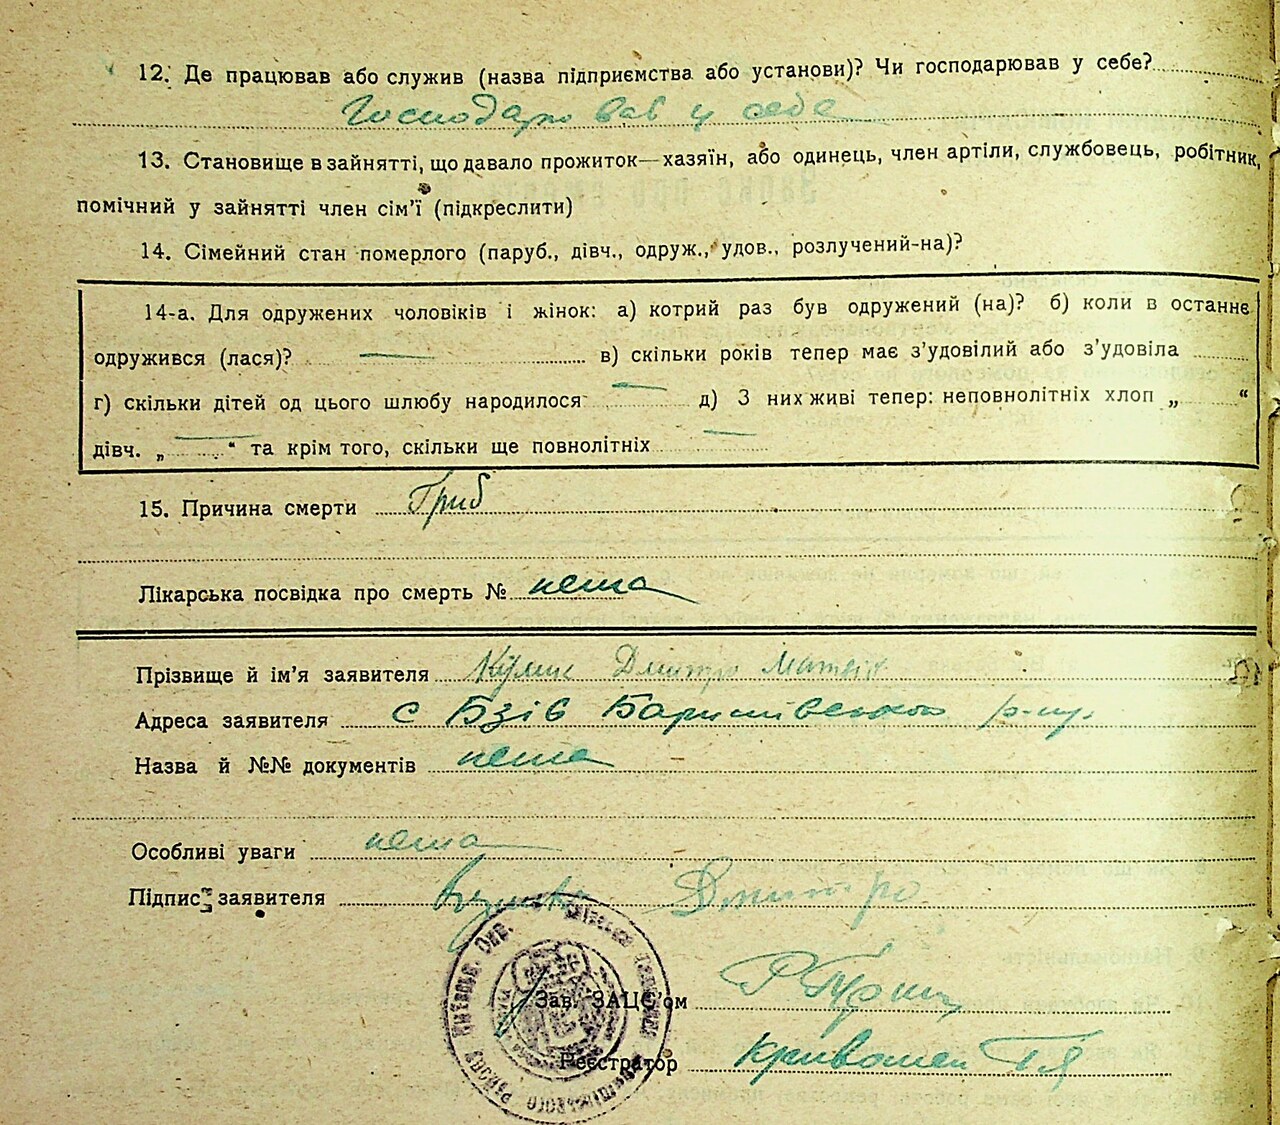 12. Де працював або служив (назва підприємства або установи)? Чи господарював у себе?
Господарював у себе
13. Становище в зайнятті, що давало прожиток—хазяїн, або одинець, член артіли, службовець, робітник,
помічний у зайнятті член сім'ї (підкреслити)
14. Сімейний стан померлого (паруб., дівч., одруж., удов., розлучений-на)?
14-а. Для одружених чоловіків і жінок: а) котрий раз був одружений (на)? б) коли в останнє
одружився (лася)? — в) скільки років тепер має з'удовілий або з'удовіла
г) скільки дітей од цього шлюбу народилося — д) З них живі тепер: неповнолітніх хлоп „ “
дівч. „ — “ та крім того, скільки ще повнолітніх —
15. Причина смерти Грип
Лікарська посвідка про смерть № нема
Прізвище й ім'я заявителя Дмитро
Адреса заявителя с Бзів Баришівського р-ну.
Назва й №№ документів нема
Особливі уваги нема
Підпис заявителя Дмитро
Зав. ЗАЦС'ом
Реєстратор